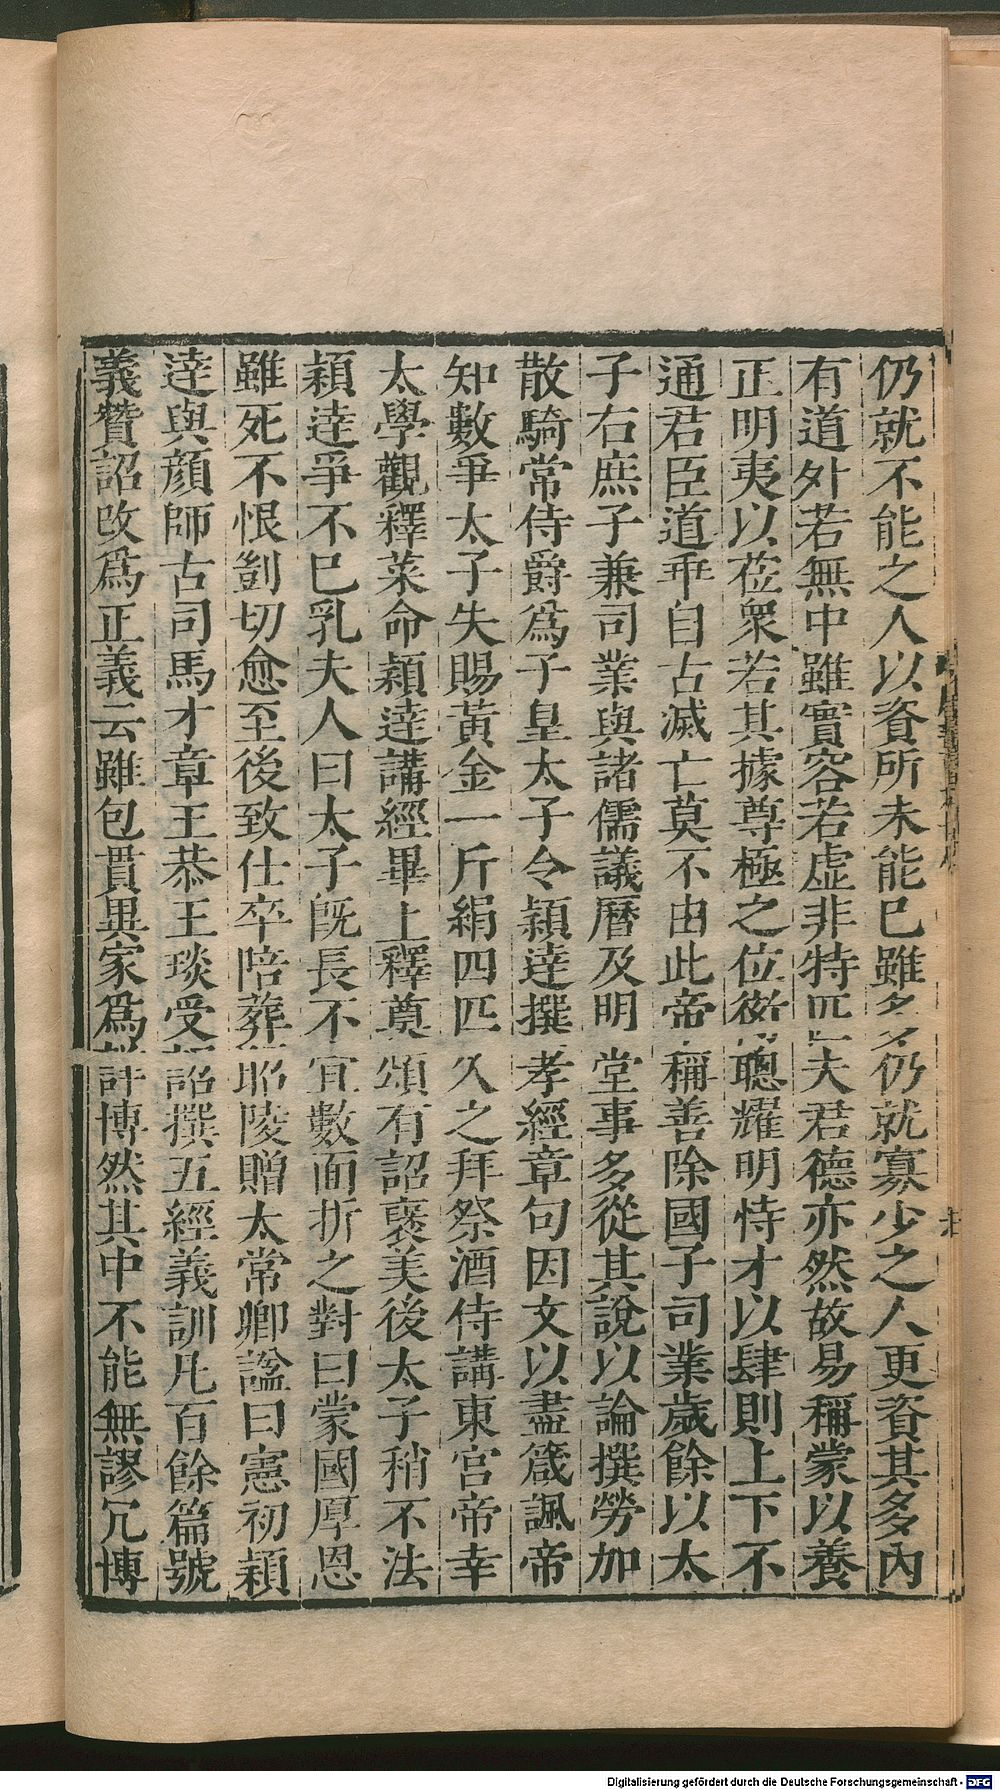 仍就不能之人以資所未能已雖多仍就寡少之人更資其多內
有道外若無中雖實容若虛非特匹夫君德亦然故易稱蒙以養
正明夷以莅衆若其據尊極之位衒聰耀明恃才以肆則上下不
通君臣道乖自古滅亡莫不由此帝稱善除國子司業歲餘以太
子右庶子兼司業與諸儒議曆及明堂事多從其說以論撰勞加
散騎常侍爵爲子皇太子令穎達撰孝經章句因文以盡箴諷帝
知數爭太子失賜黃金一斤絹四匹久之拜祭酒侍講東宮帝幸
太學觀釋菜命穎達講經畢上釋奠頌有詔褒美後太子稍不法
穎達爭不已乳夫人曰太子旣長不宜數面折之對曰蒙國厚恩
雖死不恨剴切愈至後致仕卒陪葬昭陵贈太常卿諡曰憲初穎
達與顏師古司馬才章王恭王琰受詔撰五經義訓凡百餘篇號
義贊詔改爲正義云雖包貫異家爲詳博然其中不能無謬冗博
Digitalisierung gefördert durch die Deutsche Forschungsgemeinschaft - DFG